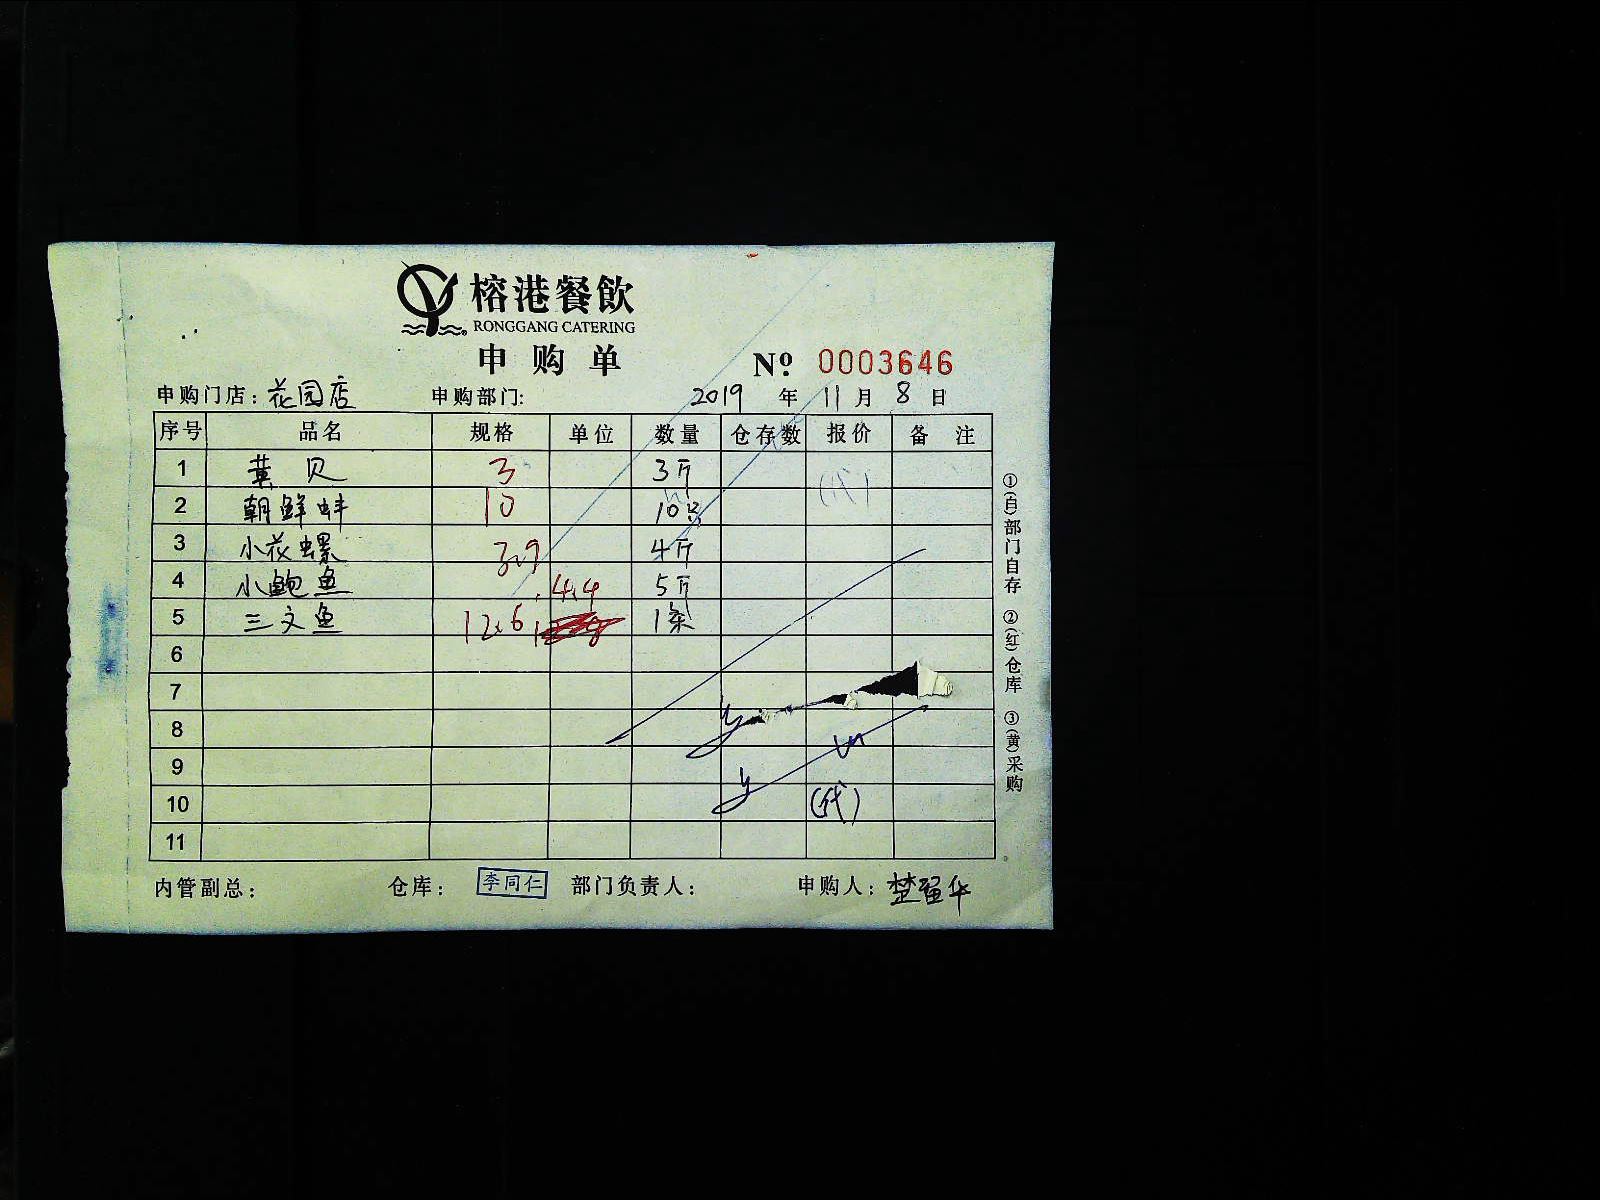 榕港餐飲
RONGGANG CATERING
申购单
Nº 0003646
申购门店：花园店 申购部门： 2019 年 11 月 8 日
序号 品名 规格 单位 数量 仓存数 报价 备注
1 黄贝 3 3斤 (代)
2 朝鲜蚌 10 10只
3 小花螺 3.9 4斤
4 小鲍鱼 4.4 5斤
5 三文鱼 12.6 1条
6
7
8
9
10 (代)
11
内管副总： 仓库：李同仁 部门负责人： 申购人：楚强华
①(白)部门自存 ②(红)仓库 ③(黄)采购